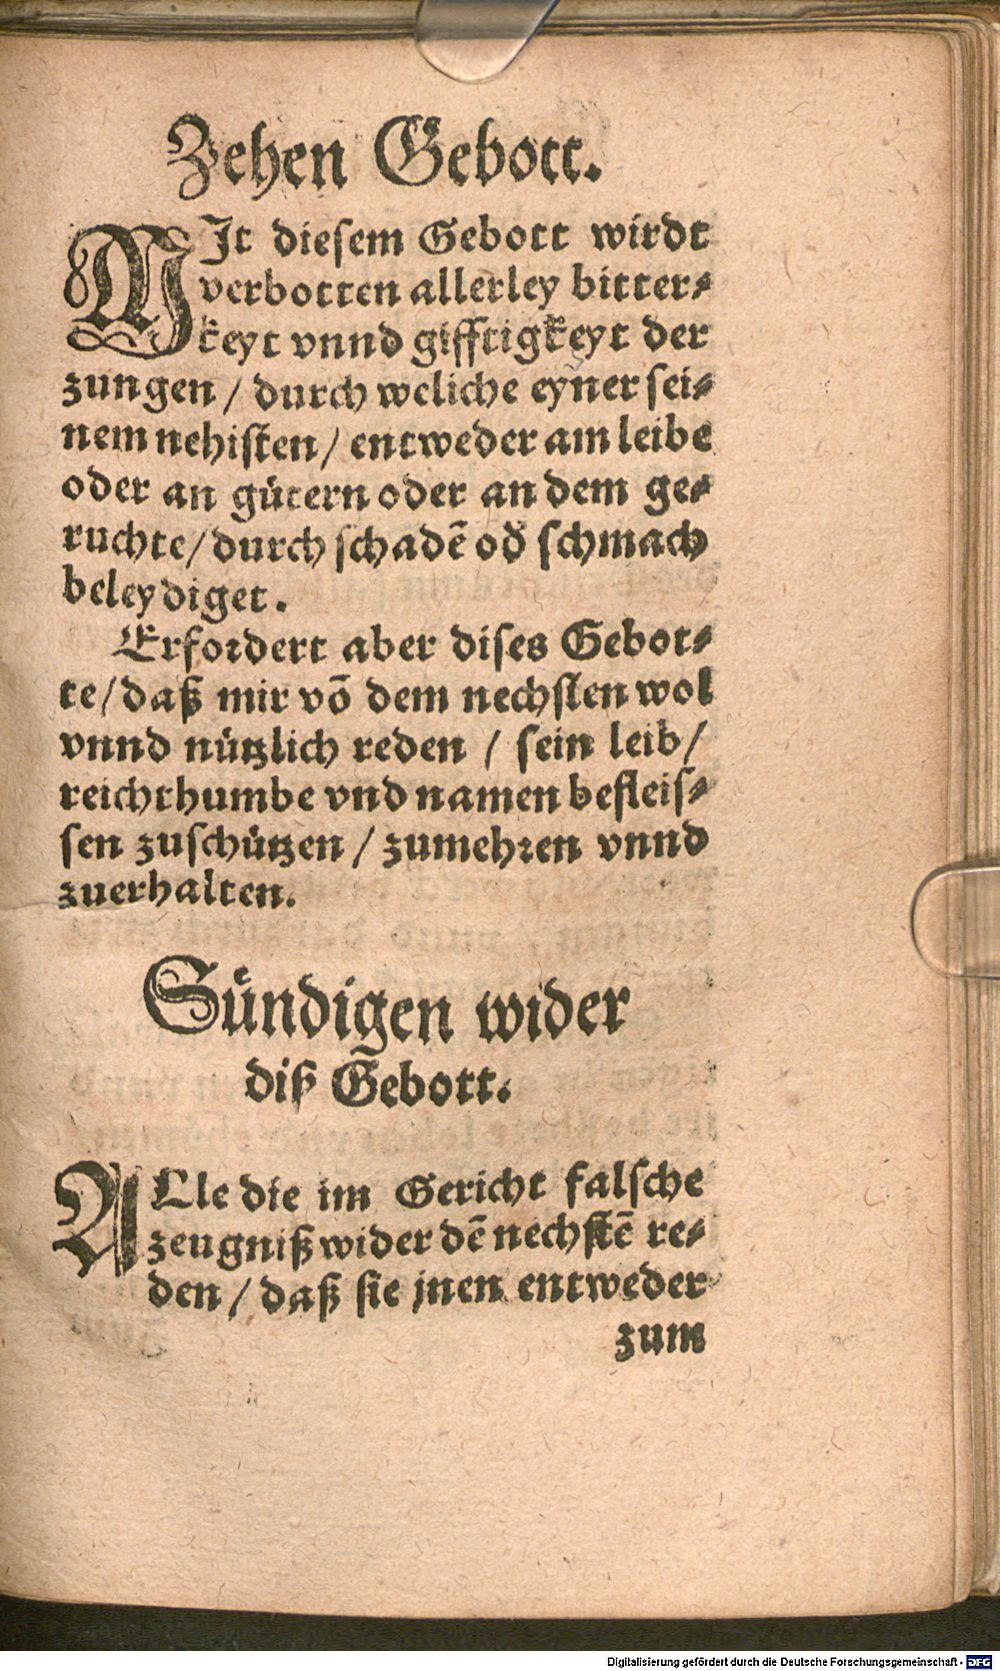 Zehen Gebott.
MIt diesem Gebott wirdt
verbotten allerley bitter⸗
keyt vnnd gifftigkeyt der
zungen / durch weliche eyner sei⸗
nem nehisten / entweder am leibe
oder an gütern oder an dem ge⸗
ruchte / durch schadē od̕ schmach
beleydiget.
Erfordert aber dises Gebot⸗
te / daß mir vō dem nechsten wol
vnnd nützlich reden / sein leib /
reichthumbe vnd namen befleis⸗
sen zuschützen / zumehren vnnd
zuerhalten.
Sündigen wider
diß Gebott.
ALle die im Gericht falsche
zeugniß wider dē nechstē re⸗
den / daß sie jnen entweder
zum
Digitalisierung gefördert durch die Deutsche Forschungsgemeinschaft - DFG